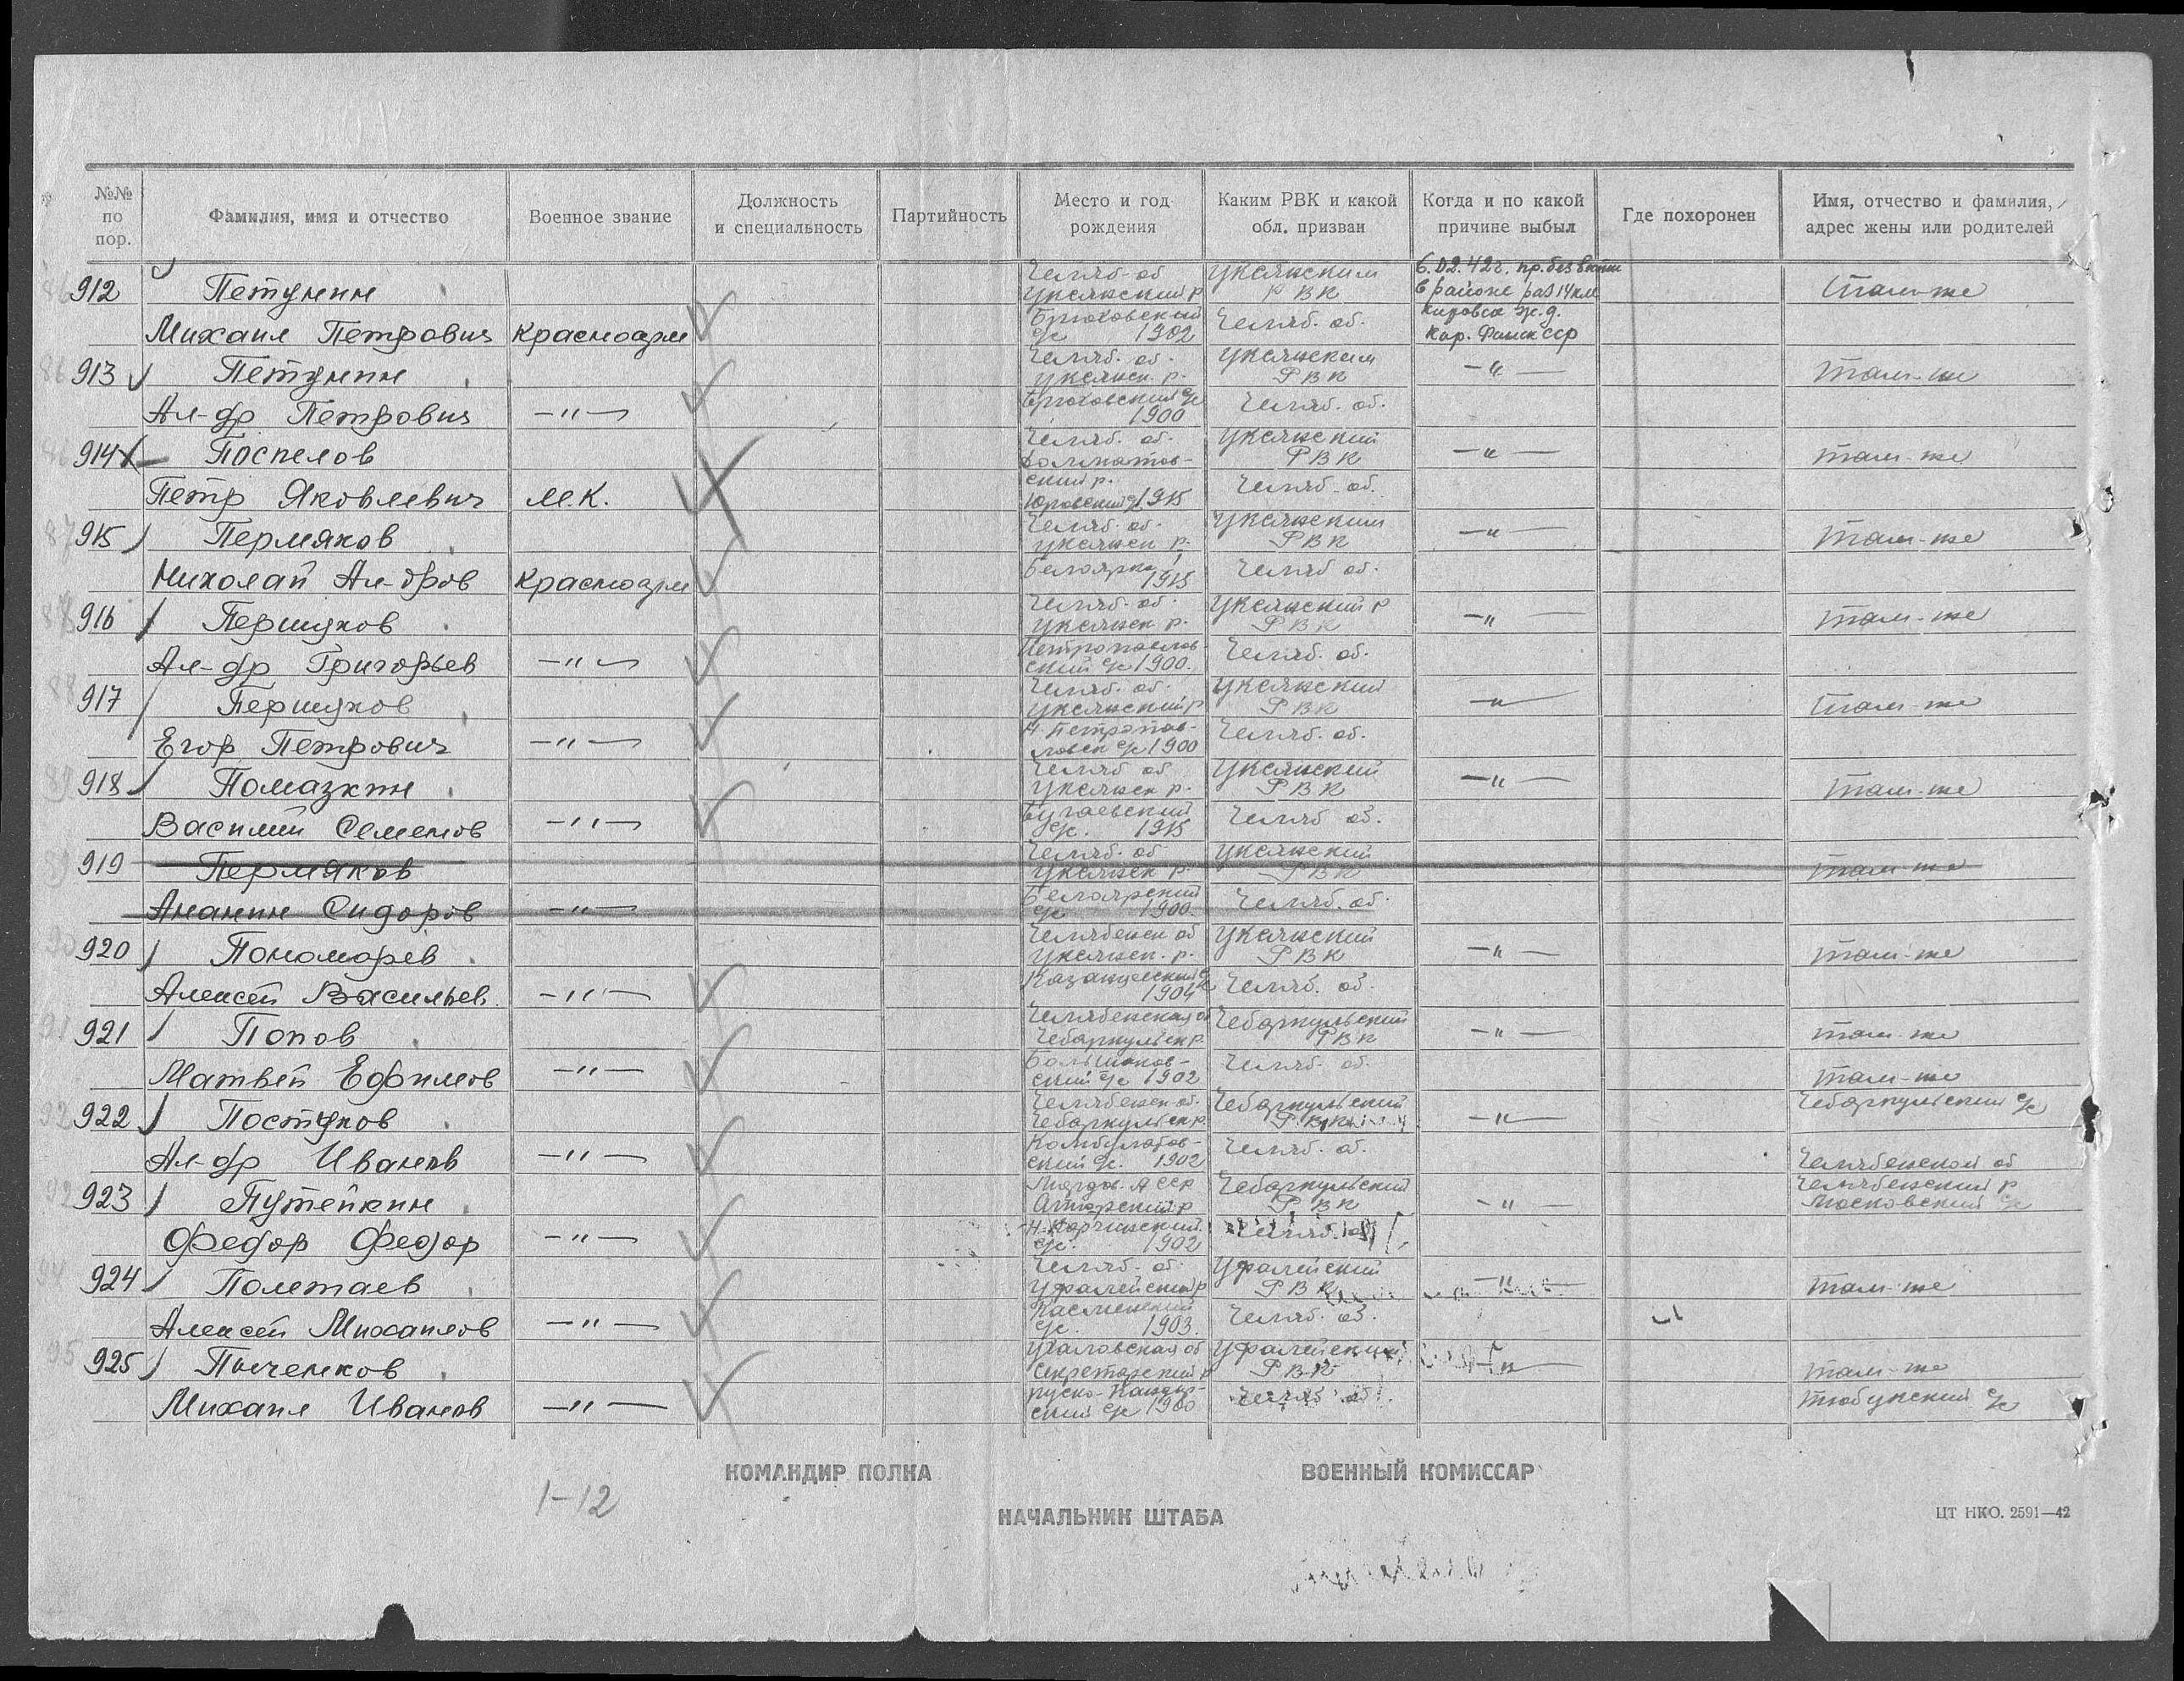 №№ по пор. Фамилия, имя и отчество Военное звание Должность и специальность Партийность Место и год рождения Каким РВК и какой обл. призван Когда и по какой причине выбыл Где похоронен Имя, отчество и фамилия, адрес жены или родителей
Челяб. об Уксянским 6.02.42г. пр. без вести
912 Петунин Уксянский р РВК в районе раз 14 км там-же
Брюховский Кировск ж.д.
Михаил Петрович Красноарм с/с 1902 Челяб. об. Кар. Финск ССР
Челяб. об. Уксянским
913 Петунин Уксянск. р. РВК —"— там-же
Брюховский с/с
Ал-др Петрович —"— 1900 Челяб. об.
Челяб. об. Уксянский
914 Поспелов Далматов- РВК —"— там-же
ский р.
Петр Яковлевич М.К. Юровский с/с 1915 Челяб. об.
Челяб. об. Уксянским
915 Пермяков Уксянск р. РВК —"— там-же
Николай Ал-дров Красноарм Белоярка 1915 Челяб об.
Челяб. об. Уксянский Р
916 Першуков Уксянск р. РВК —"— там-же
Петропавлов-
Ал-др Григорьев —"— ский с/с 1900. Челяб. об.
Челяб. об. Уксянский
917 Першуков Уксянский р РВК —"— там-же
Петропав-
Егор Петрович —"— ловск с/с 1900 Челяб. об.
Челяб об Уксянский
918 Помазкин Уксянск р. РВК —"— там-же
Бугаевский
Василий Семенов —"— с/с. 1915 Челяб об.
Челяб. об Уксянский
919 Пермяков Уксянск р. РВК там-же
Белоярский
Ананин Сидоров —"— с/с 1900. Челяб. об.
Челябенск об Уксянский
920 Пономарев Уксянск. р. РВК —"— там-же
Казанцевский с/с
Алексей Васильев. —"— 1904 Челяб. об.
Челябенская об Чебаркульский
921 Попов Чебаркульск р. РВК —"— там-же
Матвей Ефимов —"— ский с/с 1902 Челяб. об. там-же
Челябенск об. Чебаркульский Чебаркульский с/с
922 Постуков Чебаркульск р. РВК —"—
Ал-др Иванов —"— ский с/с. 1902 Челяб. об. Челябенской об
Мордов. АССР Чебаркульский Челябенский р
923 Путейкин р РВК —"— Московский с/с
Федор Федор —"— с/с. 1902 Челяб. об
Челяб. об. Уфалейский
924 Полетаев Уфалейский р РВК —"— там-же
Каслинский
Алексей Михайлов —"— с/с. 1903. Челяб. об.
Чкаловская об Уфалейский
925 Пыченков Секретарский р РВК —"— там-же
Михаил Иванов —"— ский с/с 1900 Челяб об. Тюбукский с/с
КОМАНДИР ПОЛКА ВОЕННЫЙ КОМИССАР
1-12
НАЧАЛЬНИК ШТАБА
ЦТ НКО. 2591—42